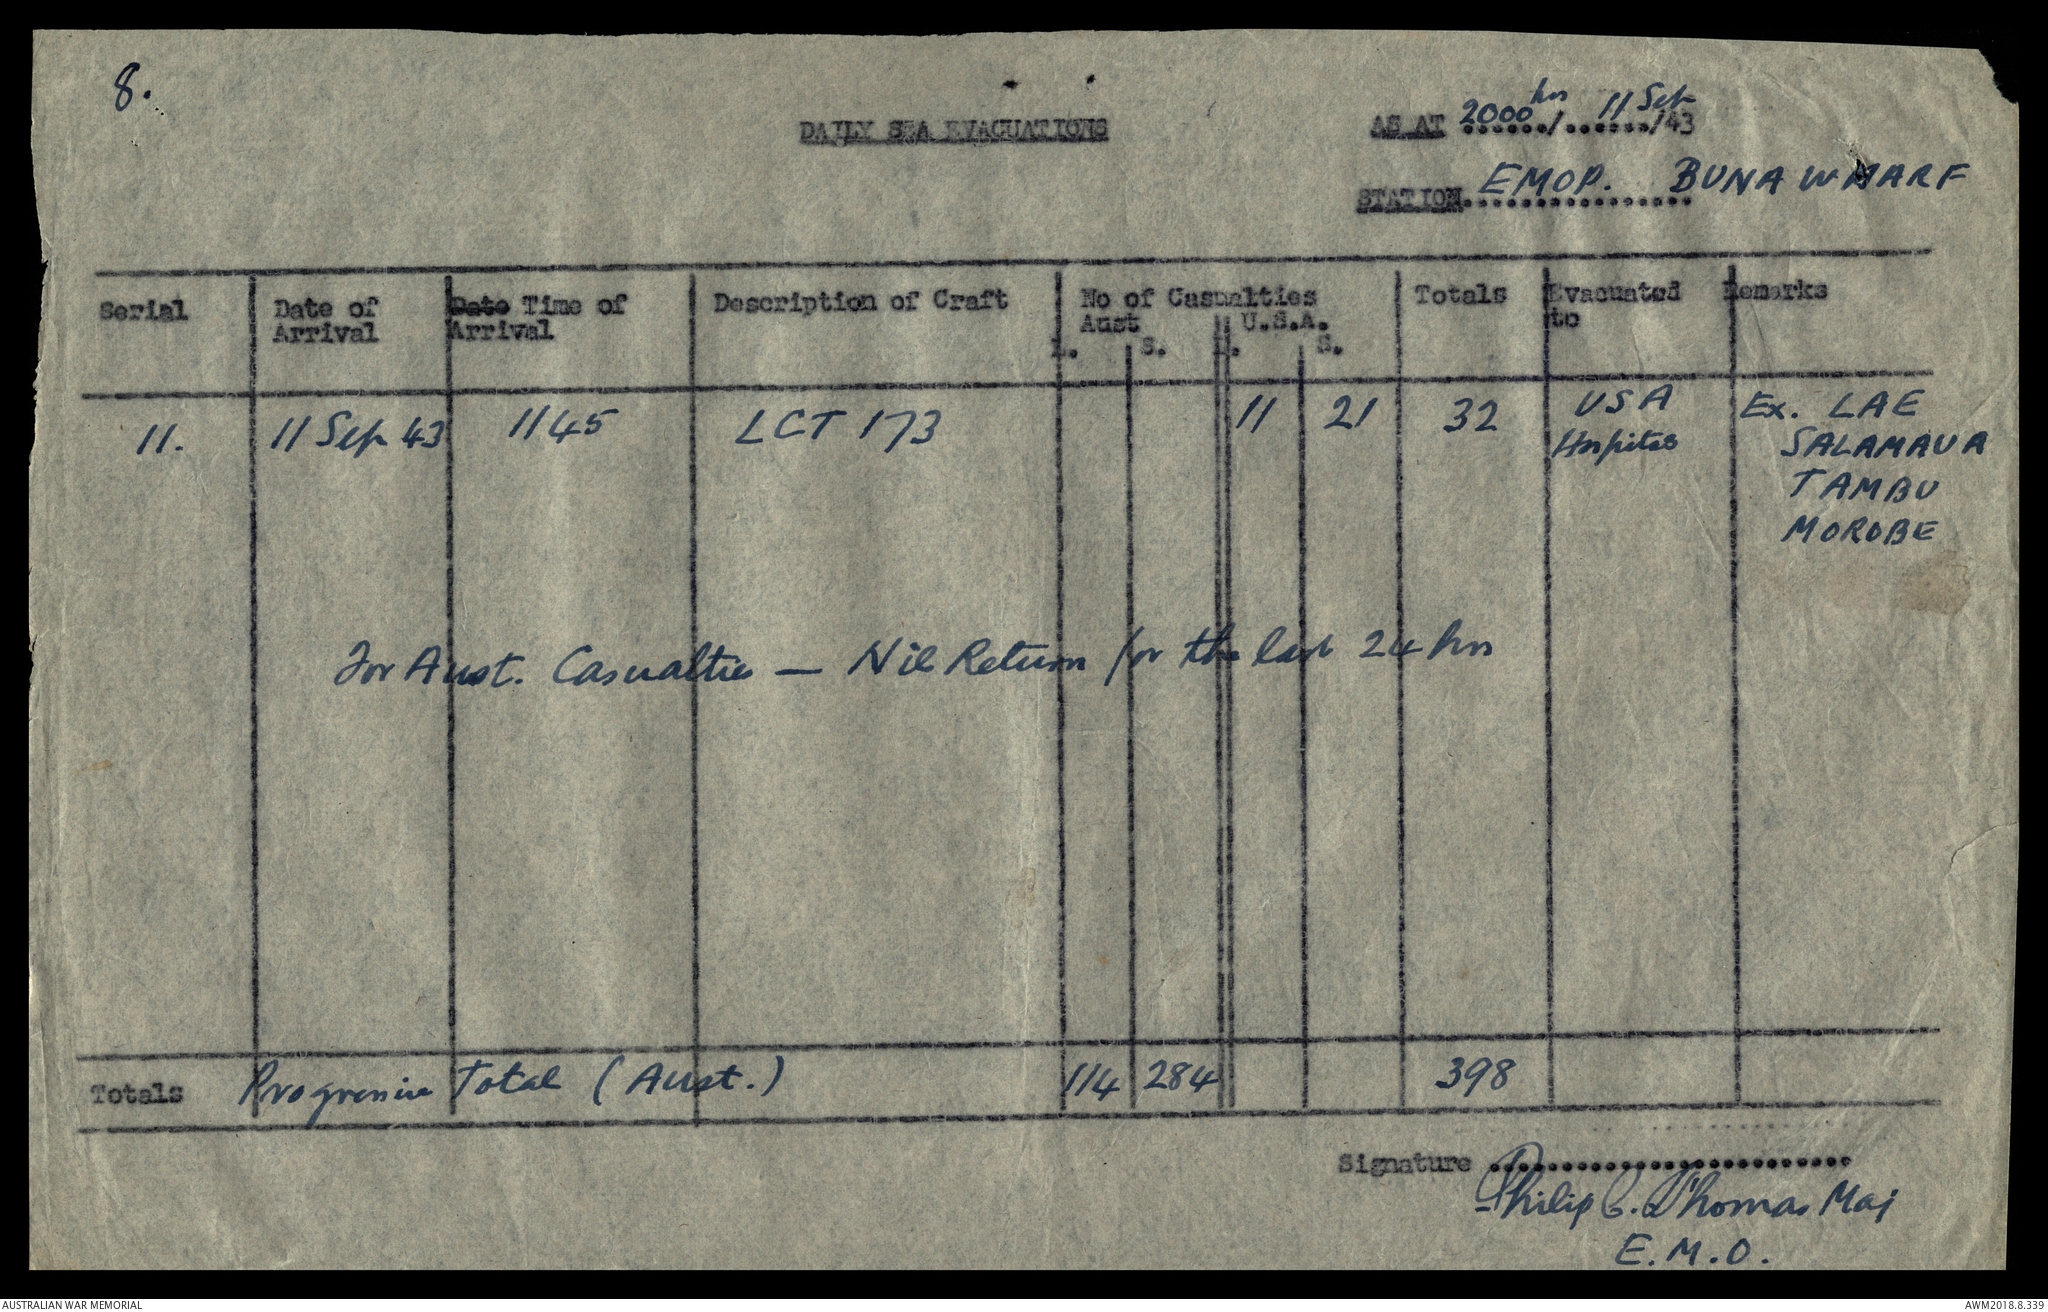 8.
DAILY SEA EVACUATIONS
AS AT 2000 hrs / 11 Sep /43
STATION EMOP. BUNA WHARF
Serial Date of Arrival Date Time of Arrival Description of Craft No of Casualties Totals Evacuated to Remarks
Aust U.S.A.
L. S. L. S.
11. 11 Sep 43 1145 LCT 173 11 21 32 USA Hospitals Ex. LAE
SALAMAUA
TAMBU
MOROBE
For Aust. Casualties — Nil Return for the last 24 hrs
Totals Progressive Total (Aust.) 114 284 398
Signature
Philip C. Thomas Maj
E.M.O.
AUSTRALIAN WAR MEMORIAL
AWM2018.8.339